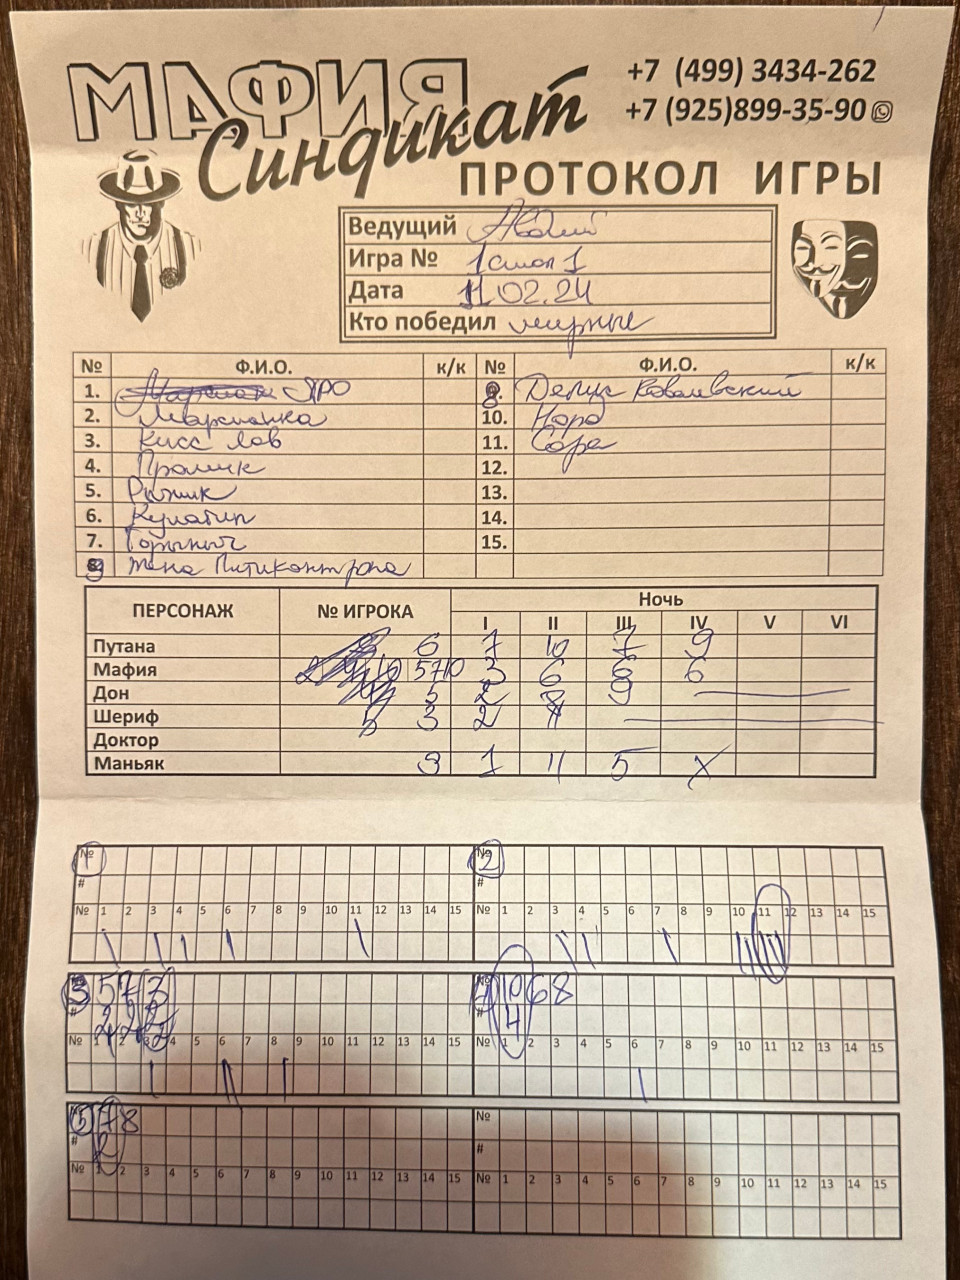 МАФИЯ
Синдикат
+7 (499) 3434-262
+7 (925)899-35-90
ПРОТОКОЛ ИГРЫ
Ведущий
Игра № 1 стол 1
Дата 11.02.24
Кто победил мирные
№ Ф.И.О. к/к № Ф.И.О. к/к
1. ЯРО 8. Денис Ковалевский
2. Марсианка 10. Нора
3. Кисс Лав 11. Сора
4. 12.
5. Рыжик 13.
6. 14.
7. Горыныч 15.
9 Жена Питикантропа
ПЕРСОНАЖ № ИГРОКА Ночь
I II III IV V VI
Путана 6 7 10 7 9
Мафия 5 7 10 3 6 8 6
Дон 5 2 8 9
Шериф 3 2
Доктор
Маньяк 3 1 11 5 X
1 2
# #
№ 1 2 3 4 5 6 7 8 9 10 11 12 13 14 15 № 1 2 3 4 5 6 7 8 9 10 11 12 13 14 15
3 5 7 3 4 10 6 8
# 2 2 2 # 4
№ 1 2 3 4 5 6 7 8 9 10 11 12 13 14 15 № 1 2 3 4 5 6 7 8 9 10 11 12 13 14 15
5 7 8 №
# 2 #
№ 1 2 3 4 5 6 7 8 9 10 11 12 13 14 15 № 1 2 3 4 5 6 7 8 9 10 11 12 13 14 15